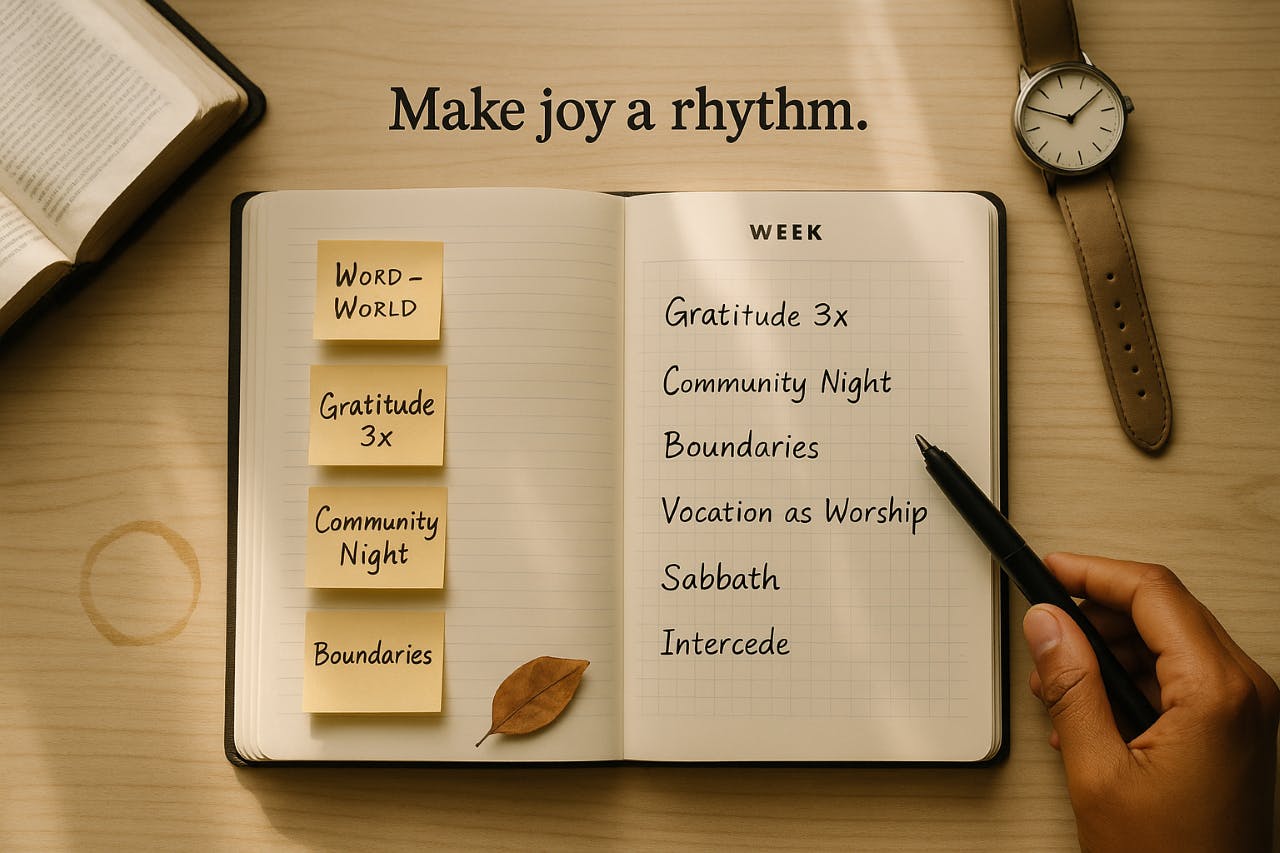 Make joy a rhythm.
WORD –
WORLD
Gratitude
3x
Community
Night
Boundaries
WEEK
Gratitude 3x
Community Night
Boundaries
Vocation as Worship
Sabbath
Intercede